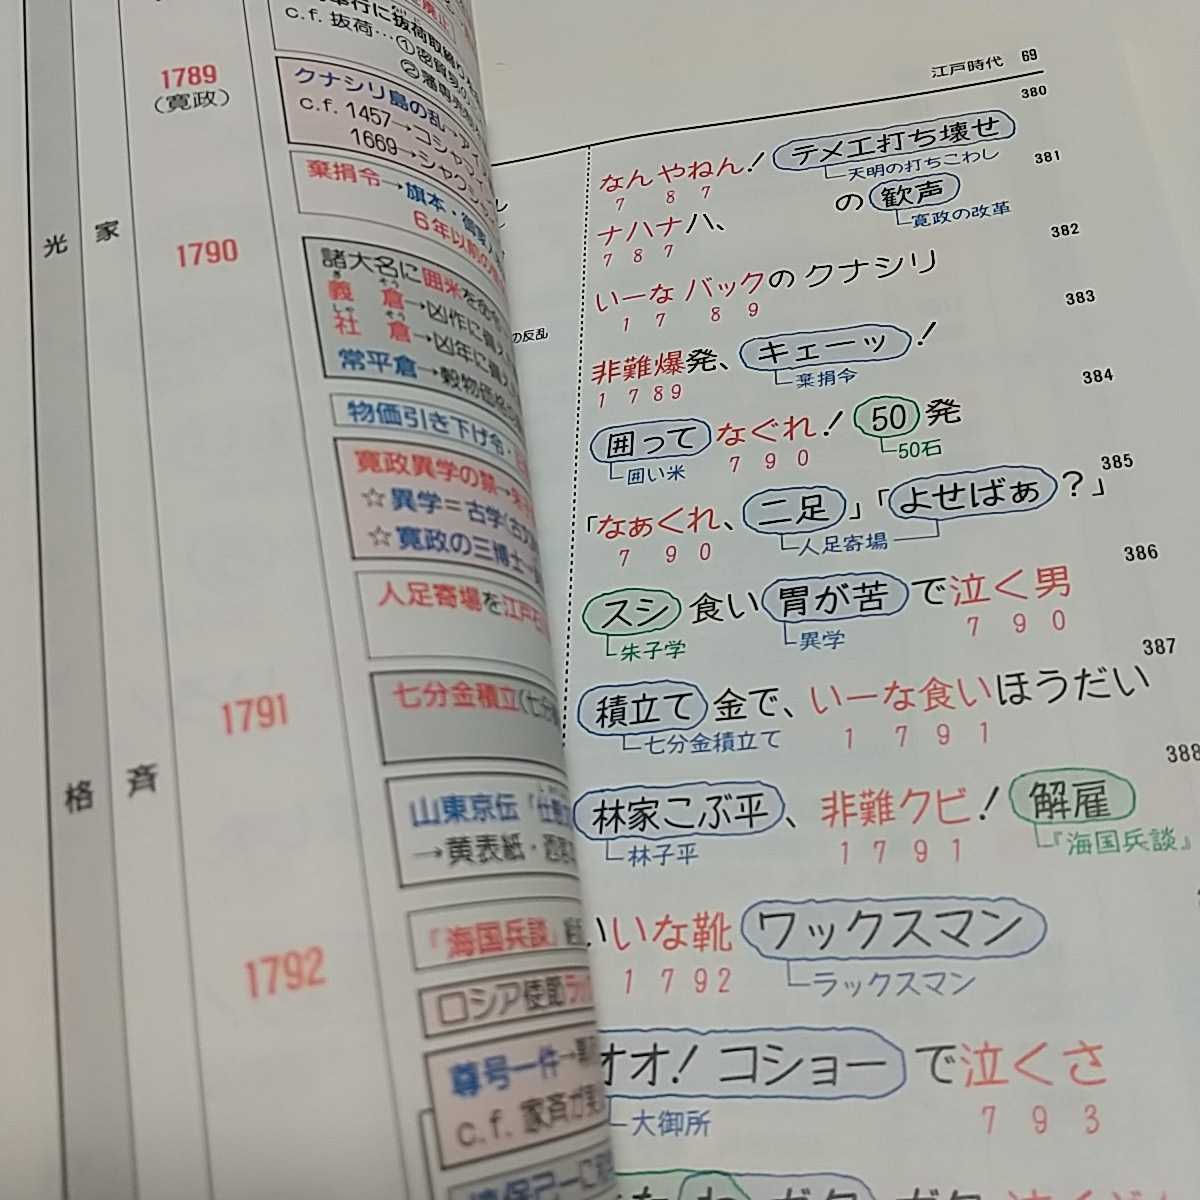 光 家
格 斉
1789
(寛政)
1790
1791
1792
c.f. 抜荷…①密貿易
クナシリ島の乱→アイ
c.f. 1457→コシャマイ
1669→シャク
棄捐令→旗本・御家人
6年以前の
諸大名に囲米を命
ぎ そう
義 倉→凶作に備え
しゃ そう
社 倉→凶年に備え
常平倉→穀物価格
物価引き下げ令・
寛政異学の禁→朱子
☆異学=古学(古文
☆寛政の三博士
人足寄場を江戸石
七分金積立(七分
山東京伝「仕懸文
→黄表紙・
「海国兵談」
ロシア使節ラッ
尊号一件→
c.f. 家斉が実
の反乱
江戸時代 69
380
なんやねん! テメエ打ち壊せ
7 8 7
天明の打ちこわし
381
ナハナハ、 の歓声
7 8 7
寛政の改革
382
いーな バックの クナシリ
1 7 8 9
383
非難爆発、キェーッ!
1 7 8 9
棄捐令
384
囲って なぐれ! 50発
囲い米
7 9 0
50石
385
「なぁくれ、二足」「よせばぁ?」
7 9 0
人足寄場
386
スシ食い胃が苦で泣く男
朱子学
異学
7 9 0
387
積立て金で、いーな食いほうだい
七分金積立て
1 7 9 1
388
林家こぶ平、非難クビ! 解雇
林子平
1 7 9 1
『海国兵談』
いいな靴 ワックスマン
1 7 9 2
ラックスマン
オオ! コショーで泣くさ
大御所
7 9 3